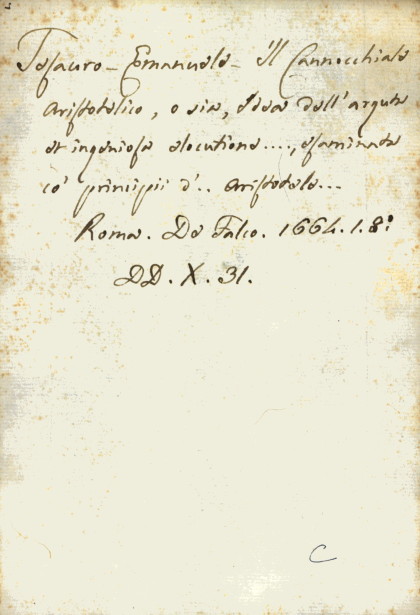 Tesauro - Emanuele - Il Cannocchiale
Aristotelico, o sia, Idea dell'arguta
et ingeniosa elocutione...., esaminata
co' principii d'.. Aristotele...
Roma. De Falco. 1664. 1. 8:
DD. X. 31.
C